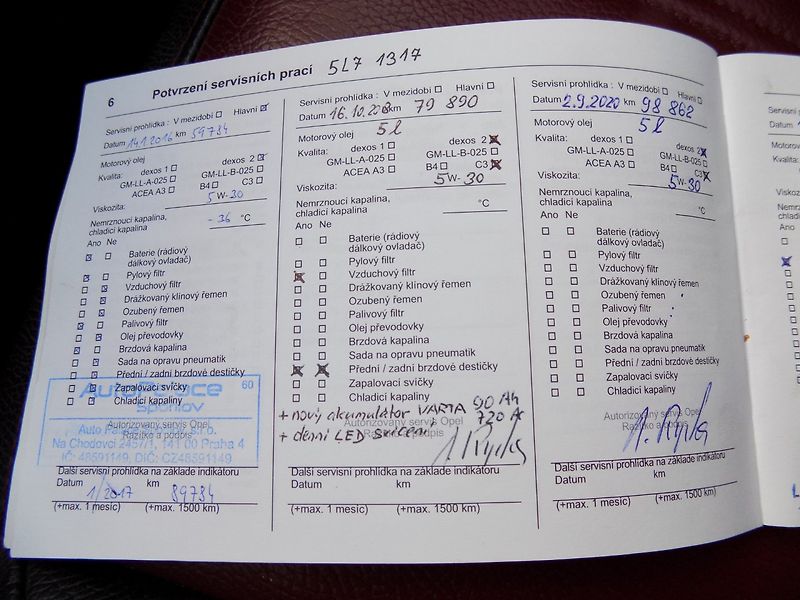 6 Potvrzení servisních prací 5L7 1317
Servisní prohlídka : V mezidobí Hlavní
Datum 14.1.2016 km 59734
Motorový olej
Kvalita: dexos 1 dexos 2
GM-LL-A-025 GM-LL-B-025
ACEA A3 B4 C3
Viskozita: 5W-30
Nemrznoucí kapalina,
chladicí kapalina -36 °C
Ano Ne
Baterie (rádiový
dálkový ovladač)
Pylový filtr
Vzduchový filtr
Drážkovaný klínový řemen
Ozubený řemen
Palivový filtr
Olej převodovky
Brzdová kapalina
Sada na opravu pneumatik
Přední / zadní brzdové destičky
Zapalovací svíčky
Chladicí kapaliny
60
Spořilov
Autorizovaný servis Opel
Razítko a podpis
Na Chodovci 2457/1, 141 00 Praha 4
IČ: 48591149, DIČ: CZ48591149
Další servisní prohlídka na základě indikátoru
Datum km
1/2017 89734
(+max. 1 měsíc) (+max. 1500 km)
Servisní prohlídka : V mezidobí Hlavní
Datum 16.10.2018 km 79 890
Motorový olej 5l
Kvalita: dexos 1 dexos 2
GM-LL-A-025 GM-LL-B-025
ACEA A3 B4 C3
Viskozita: 5W-30
Nemrznoucí kapalina,
chladicí kapalina °C
Ano Ne
Baterie (rádiový
dálkový ovladač)
Pylový filtr
Vzduchový filtr
Drážkovaný klínový řemen
Ozubený řemen
Palivový filtr
Olej převodovky
Brzdová kapalina
Sada na opravu pneumatik
Přední / zadní brzdové destičky
Zapalovací svíčky
Chladicí kapaliny
+ nový akumulátor VARTA 90 Ah
720 A
Autorizovaný servis Opel
Razítko a podpis
+ denní LED svícení
Další servisní prohlídka na základě indikátoru
Datum km
(+max. 1 měsíc) (+max. 1500 km)
Servisní prohlídka : V mezidobí Hlavní
Datum 2.9.2020 km 98 862
Motorový olej 5l
Kvalita: dexos 1 dexos 2
GM-LL-A-025 GM-LL-B-025
ACEA A3 B4 C3
Viskozita: 5W-30
Nemrznoucí kapalina,
chladicí kapalina °C
Ano Ne
Baterie (rádiový
dálkový ovladač)
Pylový filtr
Vzduchový filtr
Drážkovaný klínový řemen
Ozubený řemen
Palivový filtr
Olej převodovky
Brzdová kapalina
Sada na opravu pneumatik
Přední / zadní brzdové destičky
Zapalovací svíčky
Chladicí kapaliny
Autorizovaný servis Opel
Razítko a podpis
Další servisní prohlídka na základě indikátoru
Datum km
(+max. 1 měsíc) (+max. 1500 km)